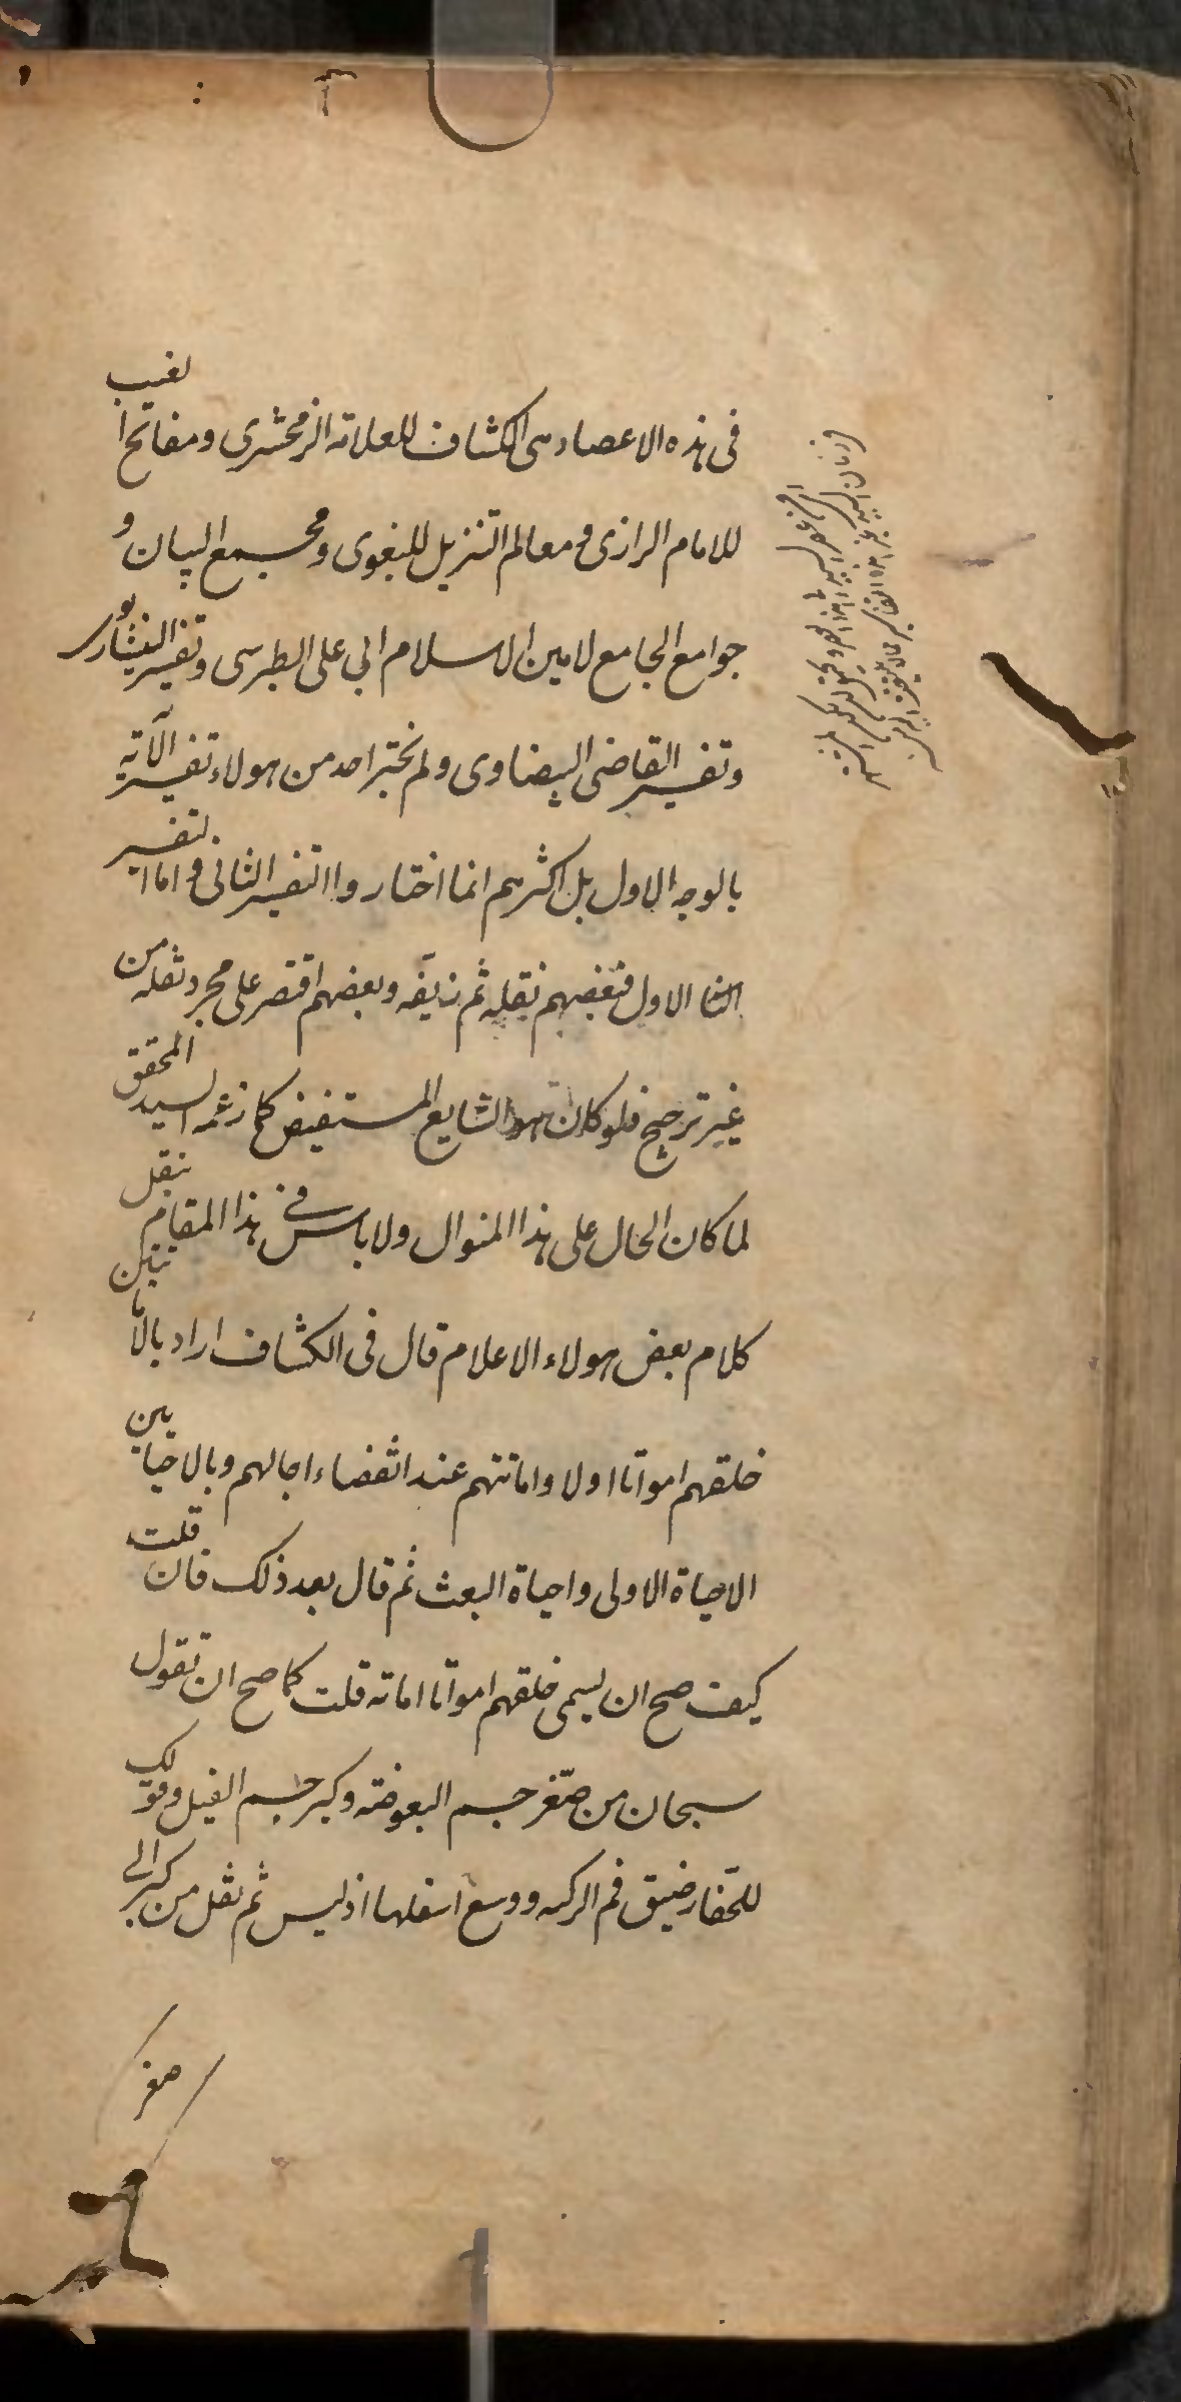 فى هذه الاعصار هى الكشاف للعلامة الزمخشرى ومفاتح الغيب
للامام الرازى ومعالم التنزيل للبغوى ومجمع البيان و
جوامع الجامع لامين الاسلام ابى على الطبرسى وتفسير النيشابورى
وتفسير القاضى البيضاوى ولم يختر احد من هولاء تفسير الآية
بالوجه الاول بل اكثرهم انما اختاروا التفسير الثانى واما التفسير
الاول فبعضهم نقله ثم زيفه وبعضهم اقتصر على مجرد نقله من
غير ترجيح فلو كان هو الشايع المستفيض كما زعمه السيد المحقق
لما كان الحال على هذا المنوال ولا باس فى هذا المقام بنقل
كلام بعض هولاء الاعلام قال فى الكشاف اراد بالاماتتين
خلقهم امواتا اولا واماتتهم عند انقضاء اجالهم وبالاحيائين
الاحياة الاولى واحياة البعث ثم قال بعد ذلك فان قلت
كيف صح ان يسمى خلقهم امواتا اماتة قلت كما صح ان تقول
سبحان من صغّر جسم البعوضة وكبر جسم الفيل وقولك
للحفّار ضيق فم الركية ووسع اسفلها اذ ليس ثم نقل من كبر الى
صغر